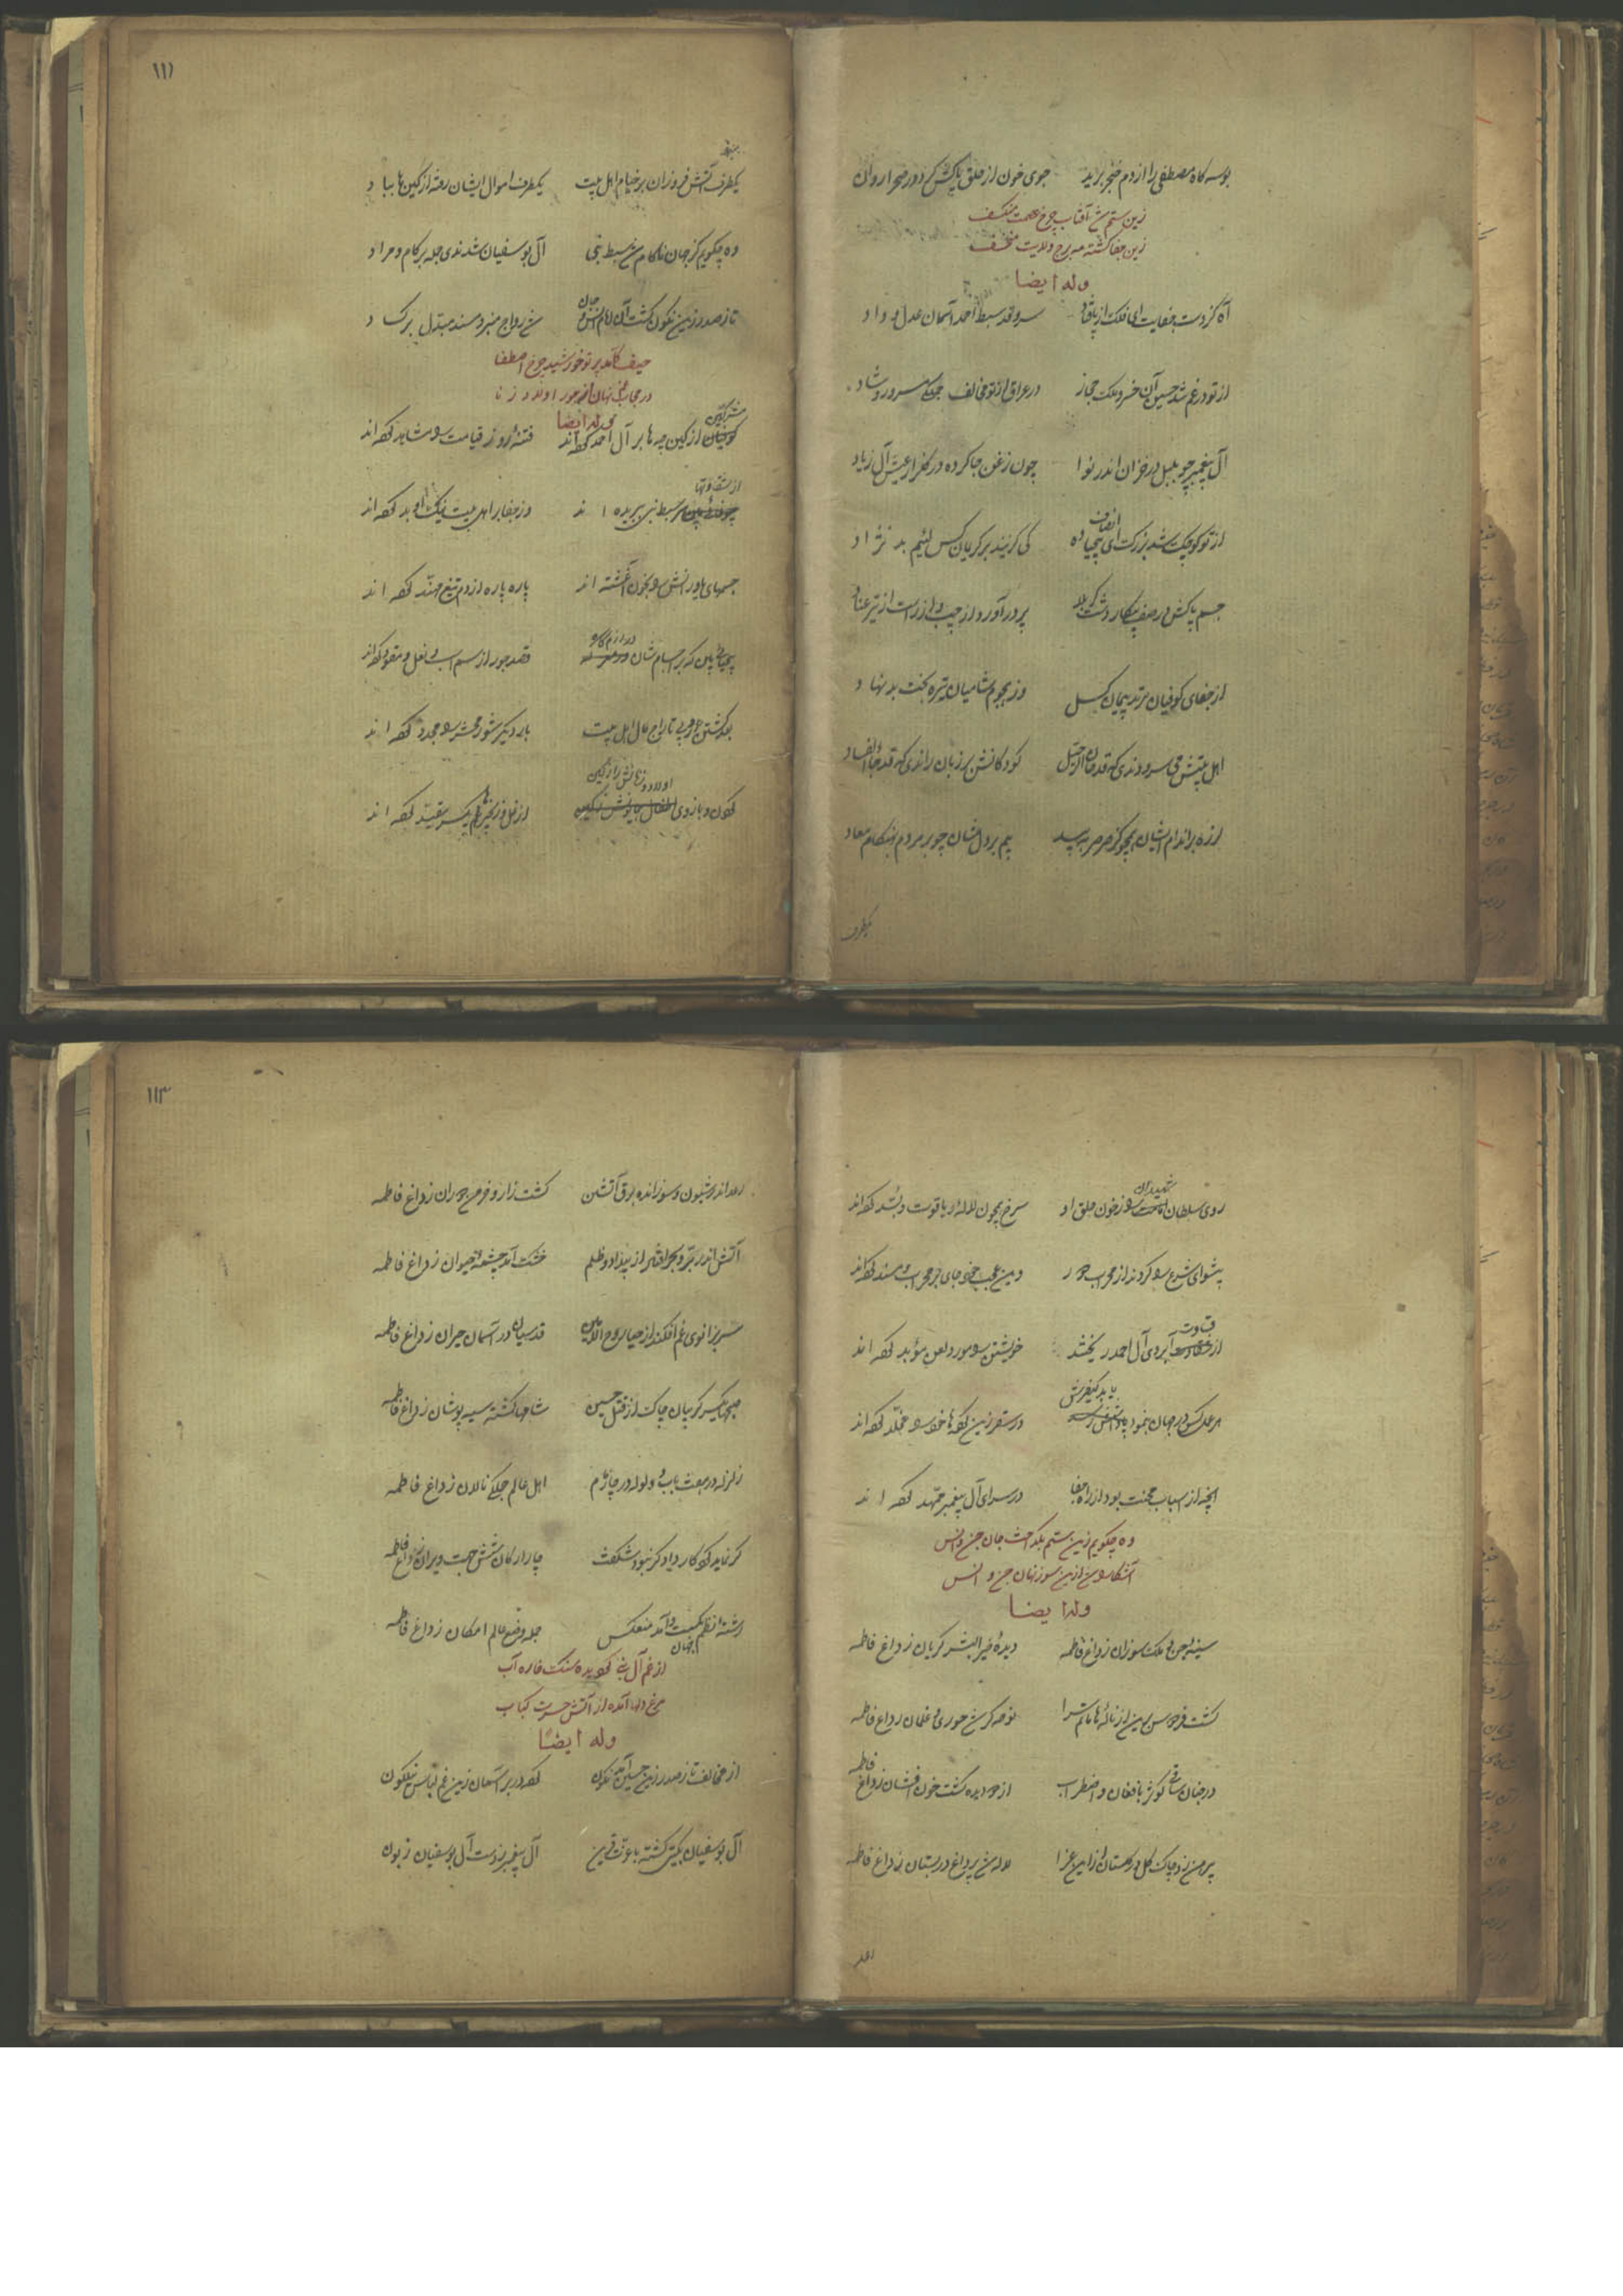 بوسه گاه مصطفی را از دم خنجر برید جوی خون از حلق پاکش کرد در صحرا روان
زین ستم شد آفتاب چرخ عصمت منکسف
زین جفا گشته مه برج ولایت منخسف
وله ایضا
آه کز دست جفایت ای فلک از پا فتاد سرو قد سبط احمد آسمان عدل و داد
از تو در غم شد حسین آن خسرو ملک حجاز در عراق از تو مخالف جملگی مسرور و شاد
آل پیغمبر چو بلبل در خزان اندر نوا چون زغن جا کرده در گلزار عیش آل زیاد
از تو کوچک شد بزرگ ای انصاف کی گزیند بر کریمان کس لئیم بد نژاد
جسم پاکش در صف پیکار دشت کربلا پر در آورد از چپ و از راست از تیر عناد
از جفای کوفیان مرتد پیمان گسل وز هجوم شامیان تیره بخت بد نهاد
اهل بیتش می سرودندی که قد حان الرحیل کودکانش بر زبان راندی که قد
لرزه بر اندام ایشان همچو کز صرصر به بید بیم بر دلشان چو بر مردم بهنگام معاد
یکطرف
۱۱۱
یکطرف آتش فروزان بر خیام اهل بیت یکطرف اموال ایشان رفته از کین ها بباد
وه چگویم کز جهان ناکام شد سبط نبی آل بوسفیان شدندی جمله بر کام و مراد
تا ز صدر زین نگون گشت آن امام انس و جان شد رواج منبر و مسند مبدل برکساد
حیف کآمد پرتو خورشید چرخ اصطفا
در حجاب غم نهان از جور اولاد زنا
وله ایضا
کوفیان مشرکین از کین چه ها بر آل احمد کرده اند فتنهٔ روز قیامت را مشاهد کرده اند
از شقاوتها سر سبط نبی ببریده اند وز جفا بر اهل بیت نیک او بد کرده اند
جسمهای یاورانش را بخون آغشته اند پاره پاره از دم تیغ مهند کرده اند
بیحیائی بین که بر اجسامشان قصد جور از سم اسب
بعد کشتن رو پی تاراج مال اهل بیت بار دیگر شور محشر را مجدد کرده اند
گردن و بازوی اطفال اولاد و زنانش را ز کین از غل و زنجیر یکسر مقید کرده اند
روی سلطان شهیدان را ز خون حلق او سرخ همچون لاله و یاقوت و بسد کرده اند
پیشوای شرع را کردند از محراب دور وین عجب خود جای در محراب و مسند کرده اند
از قساوت آبروی آل احمد ریختند خویشتن را مورد لعن مؤبد کرده اند
هر عمل کس در جهان بنمود باید کیفرش در سقر زین کرده ها خود را مخلد کرده اند
آنچه از اسباب محنت بود از راه جفا در سرای آل پیغمبر ممهد کرده اند
وه چگویم زین ستم بگداخت جان جن و انس
آشکارا شد ازین سوز نهان جن و انس
وله ایضا
سینهٔ جن و ملک سوزان ز داغ فاطمه دیدهٔ خیر البشر گریان ز داغ فاطمه
گشت فردوس برین از ناله ها ماتم سرا نوحه گر شد حوری و غلمان ز داغ فاطمه
در جنان ساقی کوثر با فغان و اضطراب از دو دیده گشت خون افشان ز داغ فاطمه
پیرهن زد چاک گل در گلستان از این عزا لاله شد پر داغ در بستان ز داغ فاطمه
رعد
۱۱۳
رعد اندر شیون و سوزانده برق آتشین کشت زار و خرمن دوران ز داغ فاطمه
آتش اندر بر و بحر افتاد از بیداد و ظلم خشک آمد چشمهٔ حیوان ز داغ فاطمه
سر بزانوی غم افکند از حیا روح الامین قدسیان در آسمان حیران ز داغ فاطمه
صبحها یکسر گریبان چاک از قتل حسین شامها گشته سیه پوشان ز داغ فاطمه
زلزله در هفت باب و ولوله در چار ام اهل عالم جملگی نالان ز داغ فاطمه
گر نماید کردگار دادگر نبود شگفت چار ارکان شش جهت ویران ز داغ فاطمه
رشتهٔ نظم جهان بگسیخت و آمد منعکس جمله وضع عالم امکان ز داغ فاطمه
از غم آل نبی گردیده سنگ خاره آب
مرغ دلها آمده از آتش حسرت کباب
وله ایضا
از مخالف تا ز صدر زین حسین آمد نگون کرد در بر آسمان زین غم لباس نیلگون
آل بوسفیان بگیتی گشته با عزت قرین آل پیغمبر ز دست آل بوسفیان زبون